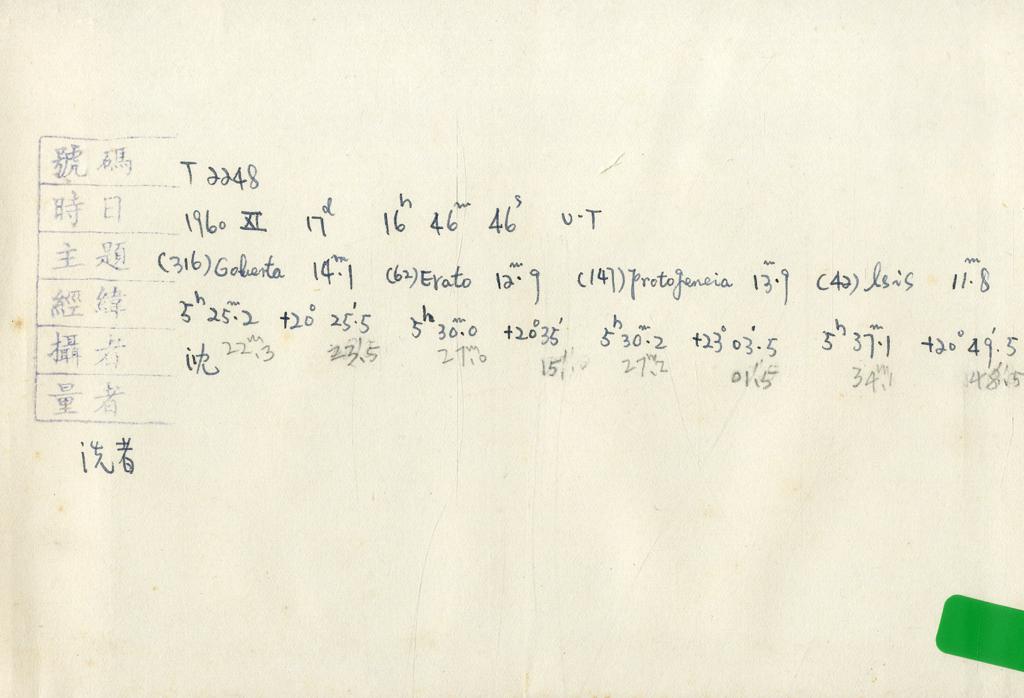 號碼 T 2248
時日 1960 XI 17ᵈ 16ʰ 46ᵐ 46ˢ U·T
主題 (316) Goberta 14ᵐ.1 (62) Erato 12ᵐ.9 (147) Protogeneia 13ᵐ.9 (42) Isis 11ᵐ.8
經緯 5ʰ 25ᵐ.2 +20° 25′.5 5ʰ 30ᵐ.0 +20°35′ 5ʰ 30ᵐ.2 +23° 03′.5 5ʰ 37ᵐ.1 +20° 49′.5
攝者 沈 22ᵐ.3 23′.5 27ᵐ.0 27ᵐ.2 01′.5 34ᵐ.1 48′.5
量者
洗者